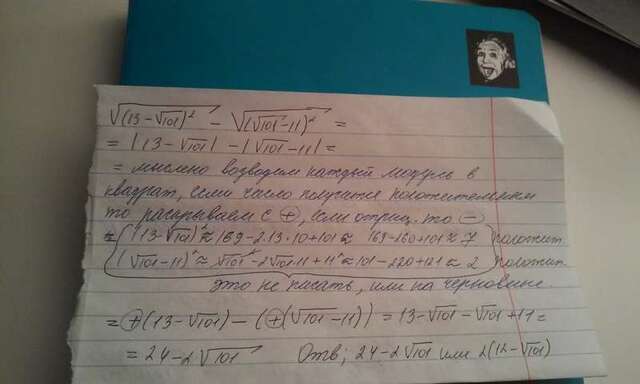 √(13-√101)² - √(√101-11)² =
= |13-√101| - |√101-11| =
= мысленно возводим каждый модуль в
квадрат, если число получится положительным
то раскрываем с ⊕, если отриц. то ⊖
≈ (13-√101)² ≈ 169-2·13·10+101 ≈ 169-260+101 ≈ 7 положит.
(√101-11)² ≈ √101² - 2√101·11+11² ≈ 101-220+121 ≈ 2 положит.
это не писать, или на черновике.
= ⊕(13-√101) - (⊕(√101-11)) = 13-√101-√101+11 =
= 24-2√101 Отв; 24-2√101 или 2(12-√101)